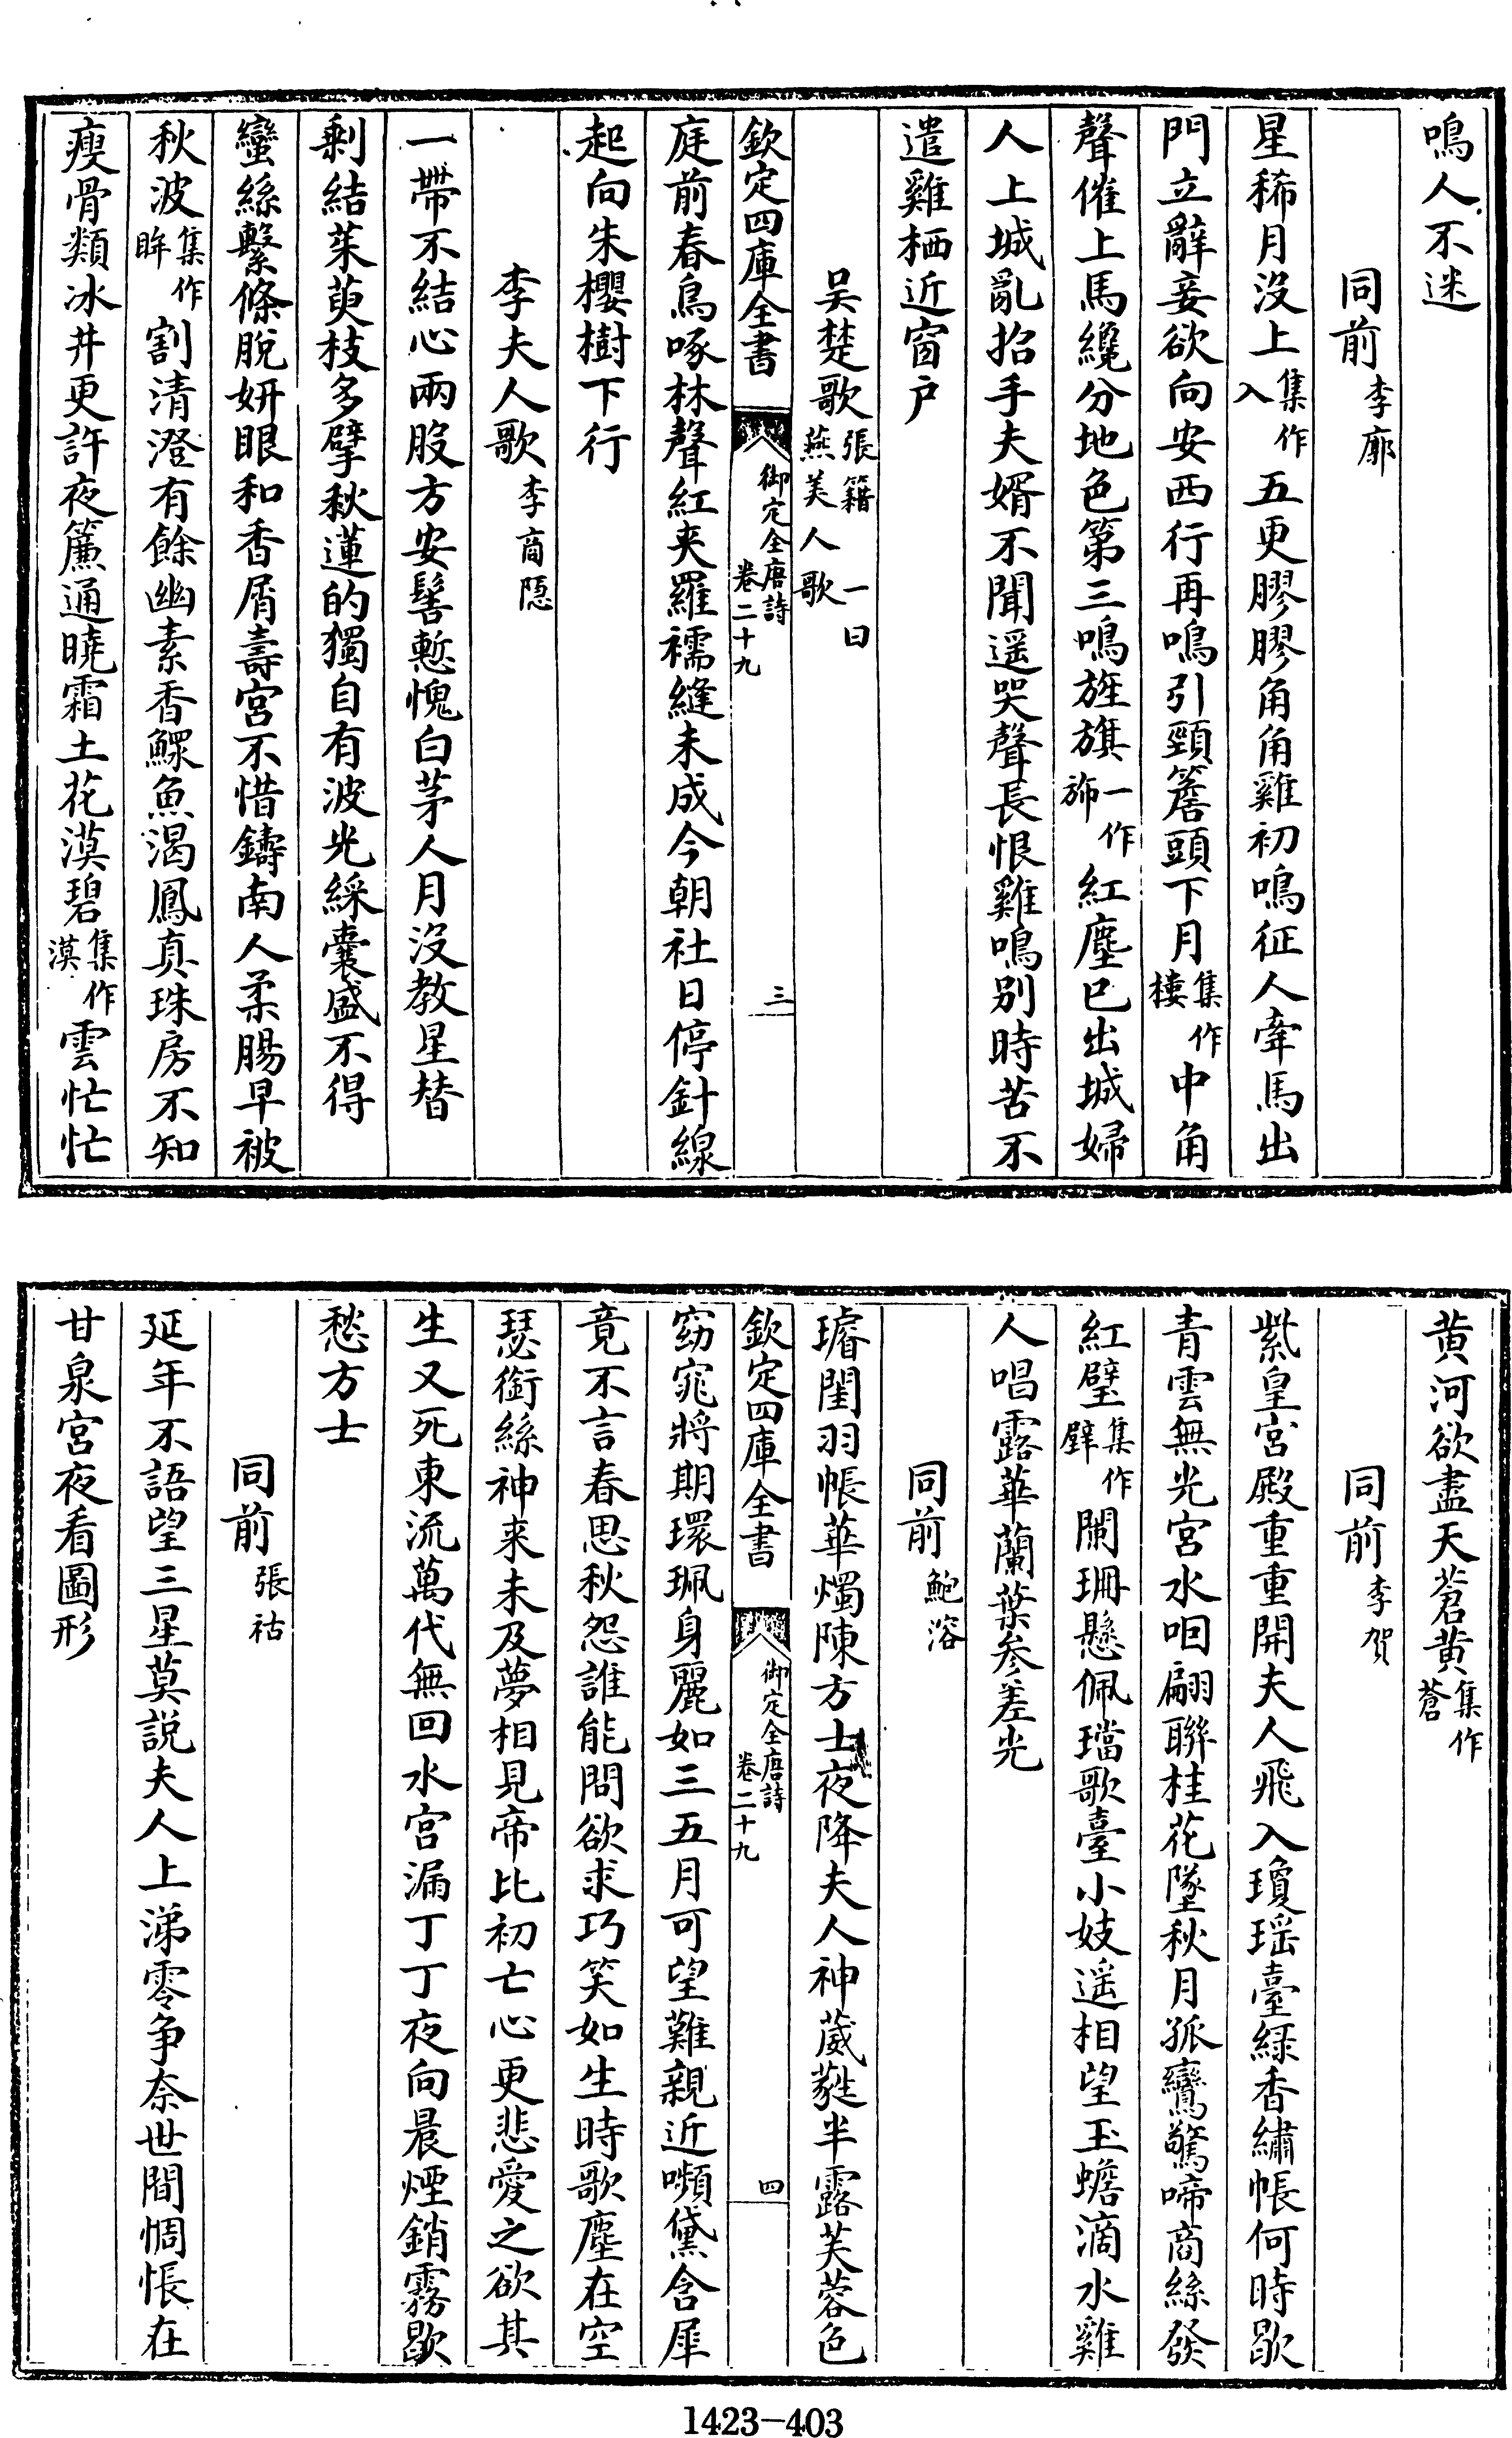 鳴人不迷
同前李廓
星稀月没上集作入五更膠膠角角雞初鳴征人牽馬出
門立辭妾欲向安西行再鳴引頸簷頭下月集作樓中角
聲催上馬纔分地色第三鳴旌旗一作斾紅塵已出城婦
人上城亂招手夫婿不聞遥哭聲長恨雞鳴別時苦不
遣雞栖近窗户
吴楚歌張籍一曰燕美人歌
欽定四庫全書
御定全唐詩卷二十九
三
庭前春鳥啄林聲紅夾羅襦縫未成今朝社日停針線
起向朱櫻樹下行
李夫人歌李商隠
一帶不結心兩股方安髻慙愧白茅人月没教星替
剰結茱萸枝多擘秋蓮的獨自有波光綵囊盛不得
蠻絲繫條脫妍眼和香屑壽宮不惜鑄南人柔腸早被
秋波集作眸割清澄有餘幽素香鰥魚渴鳳真珠房不知
瘦骨類冰井更許夜簾通曉霜土花漠碧集作漠雲忙忙
黄河欲盡天蒼黄集作蒼
同前李賀
紫皇宮殿重重開夫人飛入瓊瑶臺緑香繡帳何時歇
青雲無光宮水咽翩聯桂花墜秋月孤鸞驚啼商絲發
紅璧集作壁闌珊懸佩璫歌臺小妓遥相望玉蟾滴水雞
人唱露華蘭葉參差光
同前鮑溶
璿閨羽帳華燭陳方士夜降夫人神葳蕤半露芙蓉色
欽定四庫全書
御定全唐詩卷二十九
四
窈窕將期環珮身麗如三五月可望難親近嚬黛含犀
竟不言春思秋怨誰能問欲求巧笑如生時歌塵在空
瑟銜絲神来未及夢相見帝比初亡心更悲愛之欲其
生又死東流萬代無回水宮漏丁丁夜向晨煙銷霧歇
愁方士
同前張祜
延年不語望三星莫説夫人上涕零争奈世間惆悵在
甘泉宮夜看圖形
1423-403